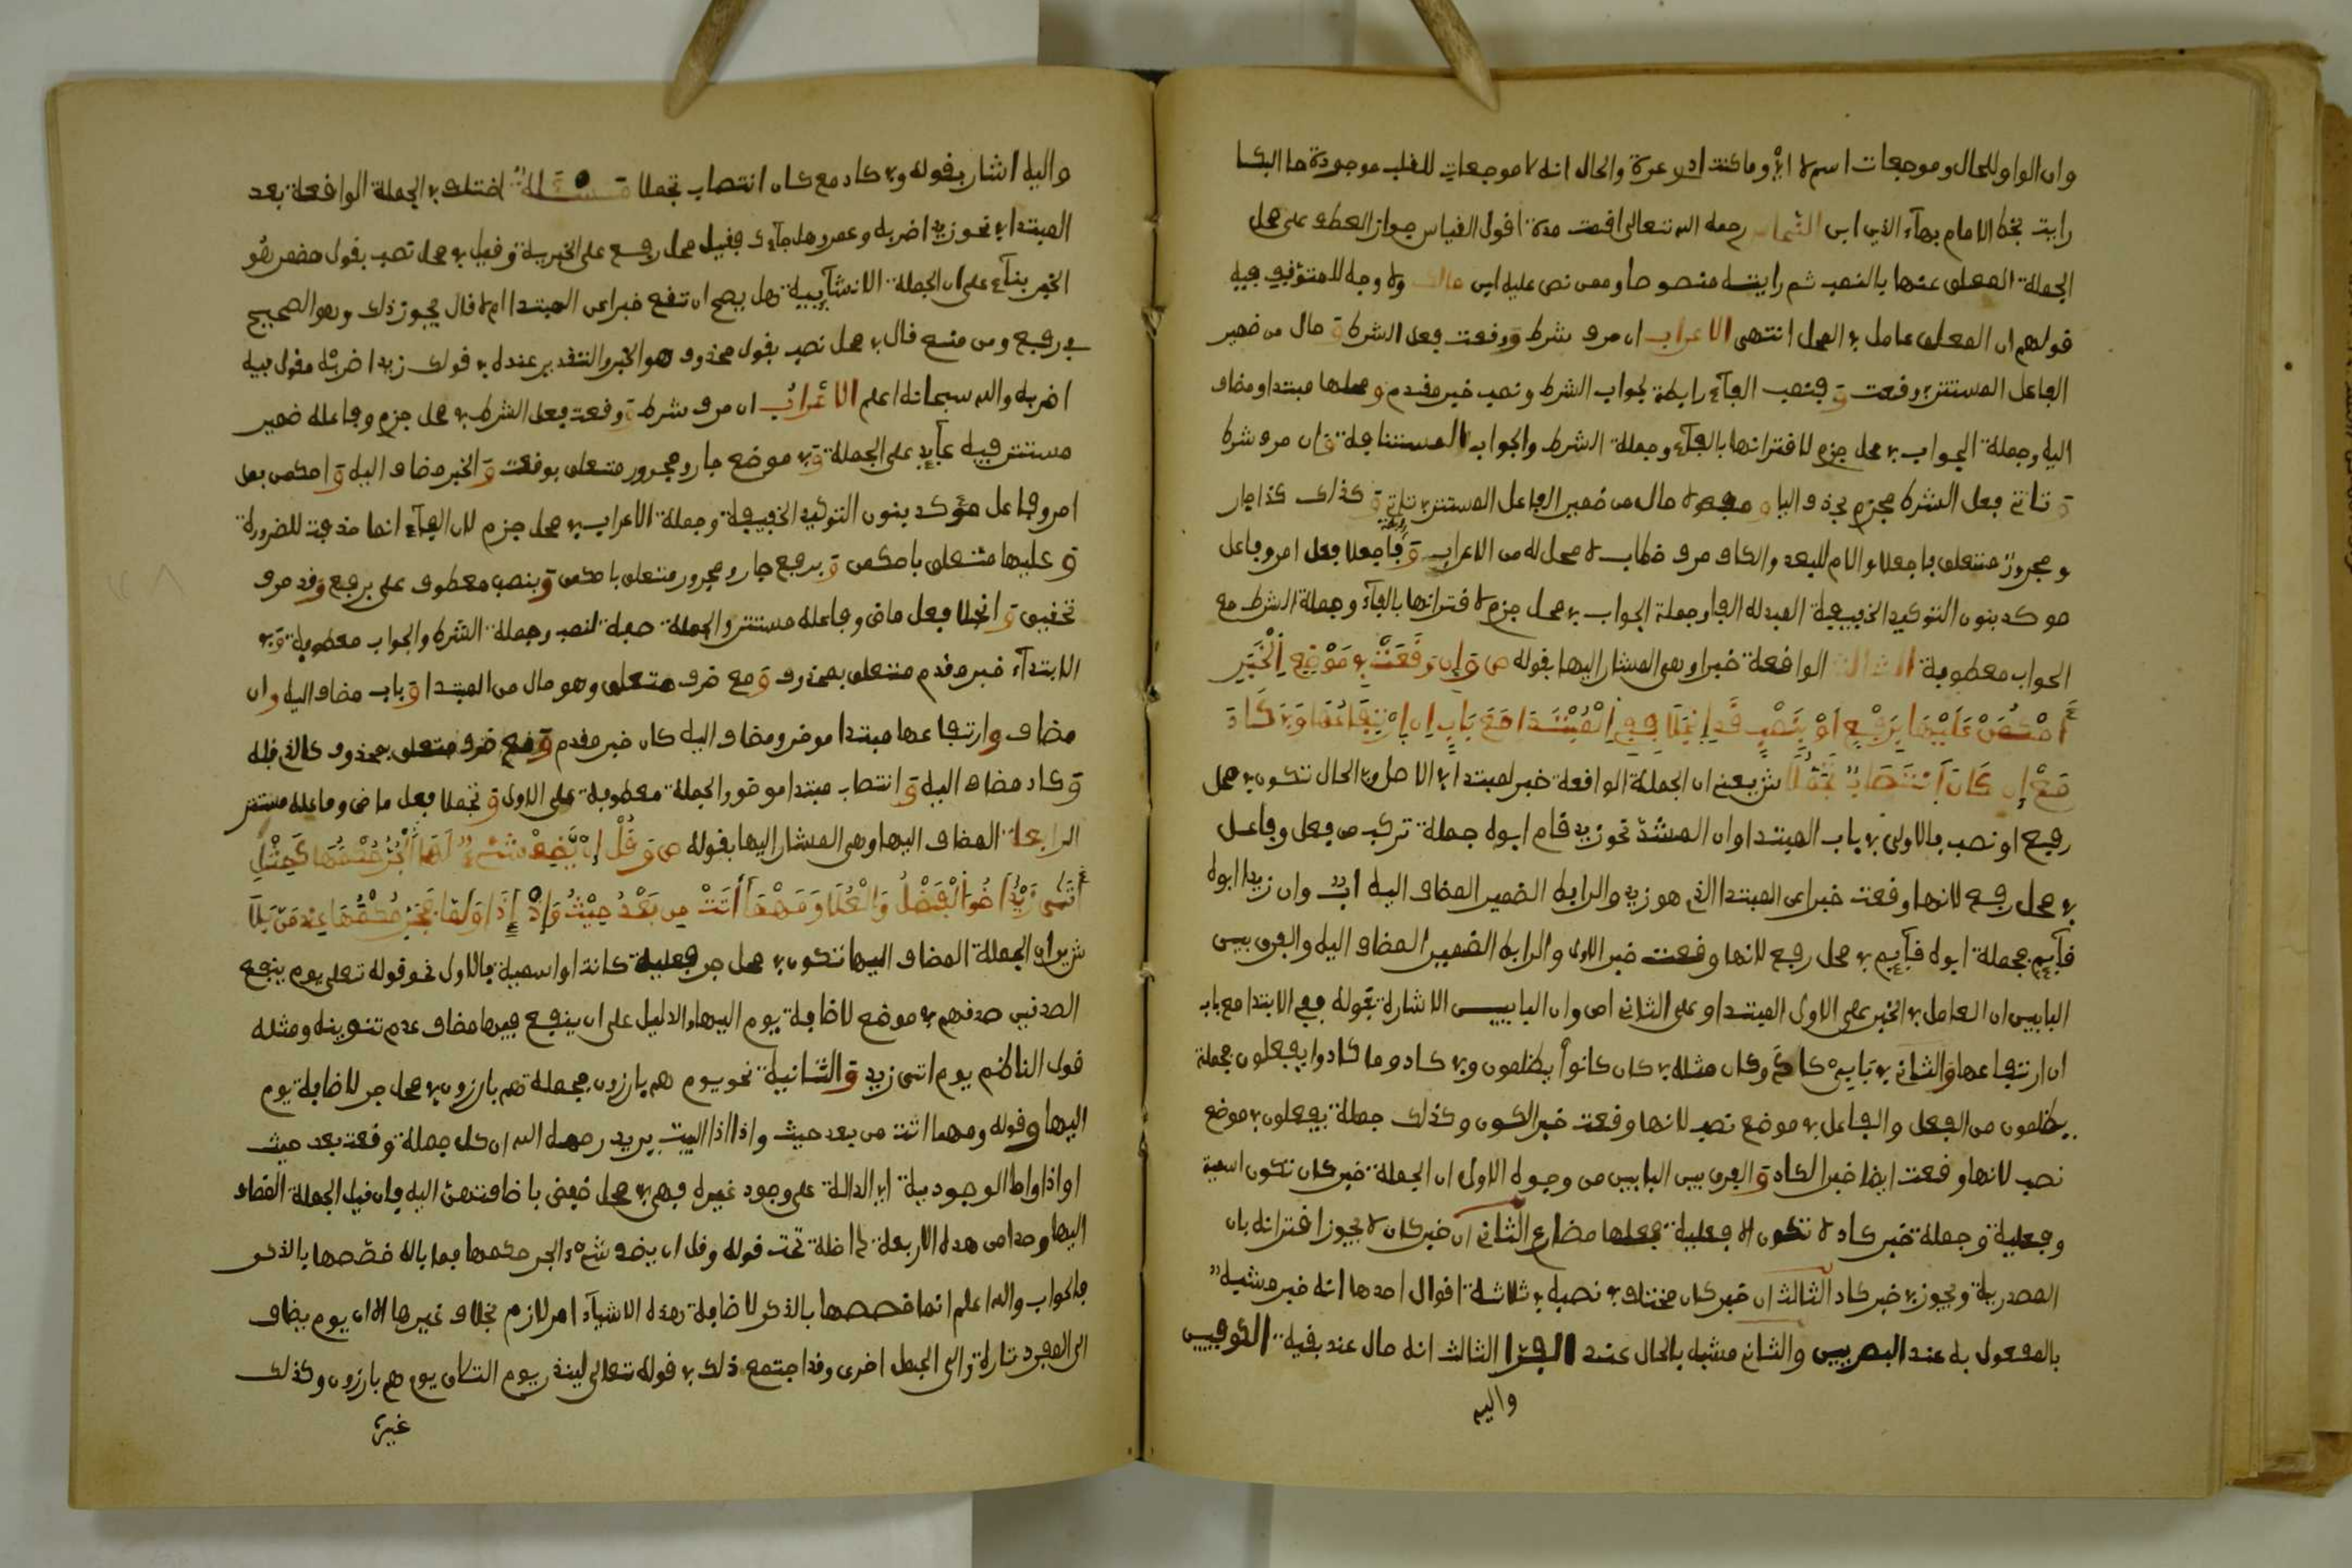 وان الواو للحال وموجعات اسم لا اي وما كنت ادر عزة والحال انه لا موجعات للقلب موجودة ما البكا
رايت بخط الامام بهاء الدين ابن النحاس رحمه الله تعالى اقمت مدة اقول القياس جواز العطف على محل
الجملة المعلق عنها بالنصب ثم رايته منصوصا وممن نص عليه ابن مالك ولا وجه للمتوقف فيه
قولهم ان المعلق عامل في المحل انتهى الاعراب ان حرف شرط ووقعت فعل الشرط و حال من ضمير
الفاعل المستتر في وقعت و فنصب الفاء رابطة لجواب الشرط ونصب خبر مقدم ومحلها مبتدا ومضاف
اليه وجملة الجواب في محل جزم لاقترانها بالفاء وجملة الشرط والجواب المستنافة وان حرف شرط
و تاتي فعل الشرط مجزم بحذف اليا و مفعولا حال من ضمير الفاعل المستتر في تاتي و كذلك كذا جار
ومجرور متعلق فاجعلا والام للبعد والكاف حرف خطاب لا محل له من الاعراب و فاجعلا فعل امر وفاعل
موكد بنون التوكيد الخفيفة المبدلة الفا وجملة الجواب في محل جزم لاقترانها بالفاء وجملة الشرط مع
الجواب معطوفة الثالثة الواقعة خبرا وهي المشار اليها بقوله ص وَإِن وَقَعَتْ فِي مَوْضِعِ اِلْخَبَرِ
اَحْكُمَنْ عَلَيْهَا بِرَفْعٍ اَوْ بِنَصْبٍ قَدِ اِنجَلَا فَفِي اِلْمُبْتَدَا مَعَ بَابِ اِن اِرْتِفَاعُهَا وَفِي كَادَ
مَعْ إِن كَانَ اَنتِصَابٌ تَحَمَّلَا ش يعني ان الجملة الواقعة خبر لمبتدا في الاصل وفي الحال تكون في محل
رفع او نصب فالاولى في باب المبتدا وان المشدّ نحو زيد قام ابوه جملة تركب من فعل وفاعل
في محل رفع لانها وقعت خبرا عن المبتدا الذي هو زيد والرابط الضمير المضاف اليه اب وان زيدا ابوه
قآيم فجملة ابوه قآيم في محل رفع لانها وقعت خبر الاول والرابط الضمير المضاف اليه والفرق بين
البابين ان العامل في الخبر على الاول المبتدا وعلى الثاني ان وان البابين الاشارة بقوله ففي الابتدا مع باب
ان ارتفاعها والثاني في بَابَيْ كاد وكان مثله في كان كانوا يظلمون وفي كاد وما كادوا يفعلون فجملة
يظلمون من الفعل والفاعل في موضع نصب لانها وقعت خبر الكون وكذلك جملة يفعلون في موضع
نصب لانها وقعت ايضا خبر الكاد و الفرق بين البابين من وجوه الاول ان الجملة خبر كان تكون اسمية
وفعلية وجملة خبر كاد لا تكون الا فعلية فعلها مضارع الثاني ان خبر كان لا يجوز اقترانه بان
المصدرية ويجوز في خبر كاد الثالث ان خبر كان مختلف في نصبه في ثلاثة اقوال احدها انه خبر مشبه
بالمفعول به عند البصريين والثاني مشبه بالحال عند الفرا الثالث انه حال عند بقية الكوفيين
واليه
واليه اشار بقوله وفي كاد مع كان انتصاب تحملا مسئلة اختلف في الجملة الواقعة بعد
المبتدا في نحو زيد اضربه وعمرو هل جآءك فقيل محل رفع على الخبرية وقيل في محل نصب بقول مضمر هو
الخبر بنآء على ان الجملة الانشآيية هل يصح ان تقع خبرا عن المبتدا ام لا قال يجوز ذلك وهو الصحيح
في رفع ومن منع قال في محل نصب بقول محذوف هو الخبر والتقدير عنده في قولك زيد اضربه مقول فيه
اضربه والله سبحانه اعلم الاعراب ان حرف شرط و وقعت فعل الشرط في محل جزم وفاعله ضمير
مستتر فيه عآيد على الجملة وفي موضع جار ومجرور متعلق بوقعت و الخبر مضاف اليه و احكمن فعل
امر وفاعل موكد بنون التوكيد الخفيفة وجملة الاعراب في محل جزم لان الفآء انما حذفت للضرورة
و عليها متعلق باحكمن و برفع جار ومجرور متعلق باحكمن وبنصب معطوف على برفع وقد حرف
تحقيق و انجلا فعل ماض وفاعله مستتر والجملة صفة لنصب وجملة الشرط والجواب معطوفة وفي
الابتدآء خبر مقدم متعلق بمحذوف و مع ظرف متعلق وهو حال من المبتدا و باب مضاف اليه وان
مضاف وارتفاعها مبتدا موخر ومضاف اليه كان خبر مقدم و مع ظرف متعلق بمحذوف كالذي قبله
و كاد مضاف اليه و انتصاب مبتدا موخر والجملة معطوفة على الاولى و تحملا فعل ماض وفاعله مستتر
الرابعة المضاف اليها وهي المشار اليها بقوله ص وَقُلْ إِنْ يُّضَفْ شَيْءٌ لَهَا اَلْجَرُّ حُكْمُهَا كَحِيْنِ
أَتَى زَيْدٌ اَخُو اَلْفَضْلِ وَالْعُلَا وَمَهْمَا أَتَتْ مِن بَعْدِ حَيْثُ وَإِذْ إِذَا وَلَمَّا فَجَرٌّ حُكْمُهَا عِندَ مَن تَلَا
ش يريد ان الجملة المضاف اليها تكون في محل جر فعلية كانت او اسمية فالاول نحو قوله تعلى يوم ينفع
الصدقين صدقهم في موضع لاضافة يوم اليها والدليل على ان ينفع فيها مضاف عدم تنوينه ومثله
قول الناظم يوم اتى زيد والثانية نحو يوم هم بارزون فجملة هم بارزون في محل جر لاضافة يوم
اليها وقوله ومهما اتت من بعد حيث واذا اذا البيت يريد رحمه الله ان كل جملة وقعت بعد حيث
او اذا او لما الوجودية اي الدالة على وجود غيره فهي في محل خفض باضافتهن اليه فان قيل الجملة المضاف
اليها وحدا من هذه الاربعة داخلة تحت قوله وقل ان يضف شيء الجر حكمها فما باله خصصها بالذكر
فالجواب والله اعلم انما خصصها بالذكر لاضافة هذه الاشيآء امر لازم بخلاف غيرها الا ان يوم يضاف
الى المفرد تارة والى الجمل اخرى وقد اجتمع ذلك في قوله تعالى لينذر يوم التلاق يوم هم بارزون وكذلك
غير